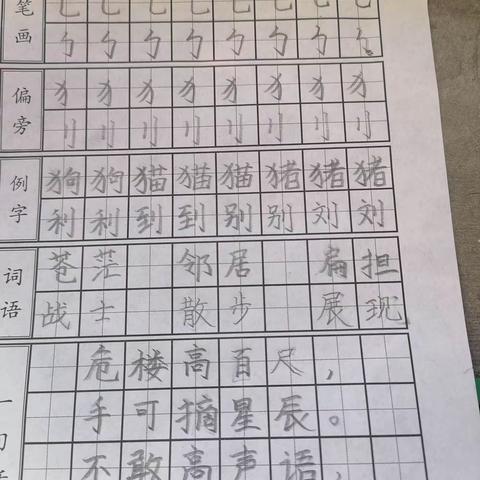 笔画
乚 乚 乚 乚 乚 乚 乚 乚
ㄅ ㄅ ㄅ ㄅ ㄅ ㄅ ㄅ ㄅ
偏旁
犭 犭 犭 犭 犭 犭 犭 犭
刂 刂 刂 刂 刂 刂 刂 刂
例字
狗 狗 猫 猫 猫 猪 猪 猪
利 利 到 到 别 别 刘 刘
词语
苍茫 邻居 扁担
战士 散步 展现
危楼高百尺，
手可摘星辰。
不敢高声语，